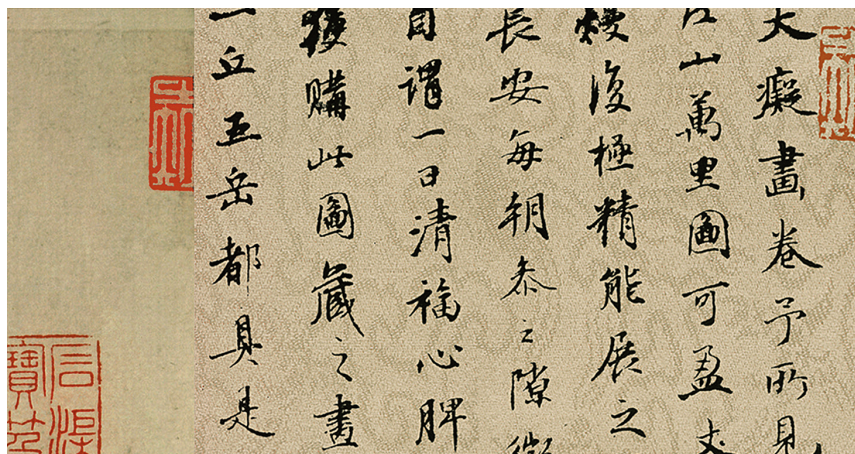 大癡畫卷予所見
江山萬里圖可盈丈
爛復極精能展之
長安每朝參之隙徵
自謂一日清福心脾
獲購此圖藏之畫
一丘五岳都具是